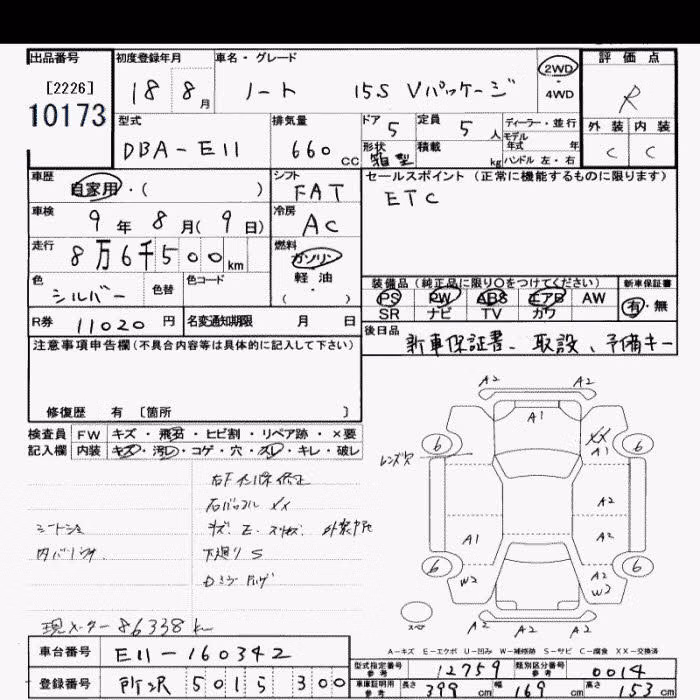 出品番号
[2226]
10173
初度登録年月
18 8月
車名・グレード
ノート 15S Vパッケージ
2WD
・
4WD
評価点
R
外装 内装
C C
型式
DBA-E11
排気量
660 cc
ドア 5
定員 5 人
形状 箱型
積載 kg
ディーラー・並行
モデル
年式 年
ハンドル 左・右
車歴
自家用・( )
シフト
FAT
セールスポイント(正常に機能するものに限ります)
ETC
車検
9年8月(9日)
冷房
AC
走行
8万6千500km
燃料
ガソリン
軽油
( )
色
シルバー
色替
色コード
装備品(純正品に限り○をつけてください)
新車保証書
PS PW ABS エアB AW
SR ナビ TV カワ
有・無
R券 11020円
名変通知期限 月 日
後日品
新車保証書、取説、予備キー
注意事項申告欄(不具合内容等は具体的に記入して下さい)
修復歴 有 [箇所 ]
検査員 FW キズ・飛石・ヒビ割・リペア跡・×要
記入欄 内装 キズ・汚レ・コゲ・穴・スレ・キレ・破レ
下廻りS
現メーター86338k
A2 A2
A1
XX
A1
6 6
レンズ穴
A2
A1
A2
6 6
W2
A2
W2
A2 A2 A2
スペア
A-キズ E-エクボ U-凹み W-補修跡 S-サビ C-腐食 XX-交換済
車台番号 E11-160342
型式指定番号 参考 12759
類別区分番号 参考 0014
登録番号 所沢 501 5 300
車庫証明用 参考 長さ 399cm 幅 169cm 高さ 153cm